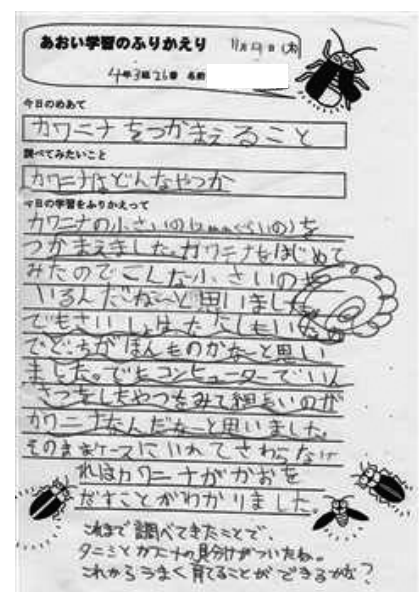 あおい学習のふりかえり 11月9日(木)
4年3組26番 名前
今日のめあて
カワニナをつかまえること
調べてみたいこと
カワニナはどんなやつか
今日の学習をふりかえって
カワニナの小さいの(2mmくらいの)を
つかまえました。カワニナをはじめて
みたのでこんな小さいのも
いるんだな〜と思いました
でもさいしょはたにしもいた
でどっちがほんものかな〜と思い
ました。でもコンピューターでいん
さつをしたやつをみて細長いのが
カワニナなんだな〜と思いました。
そのままケースにいれてさわらなけ
ればカワニナがかおを
だすことがわかりました。
これまで調べてきたことで、
タニシとカワニナの見分けがついたね。
これからうまく育てることができるかな?